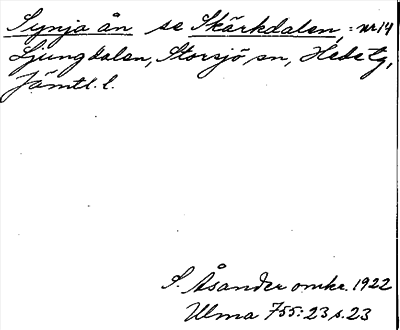 Synja ån se Skärkdalen, = nr 14
Ljungdalen, Storsjö sn, Hede tg,
Jämtl. l.
S. Åsander omkr. 1922
Ulma 755:23 s. 23